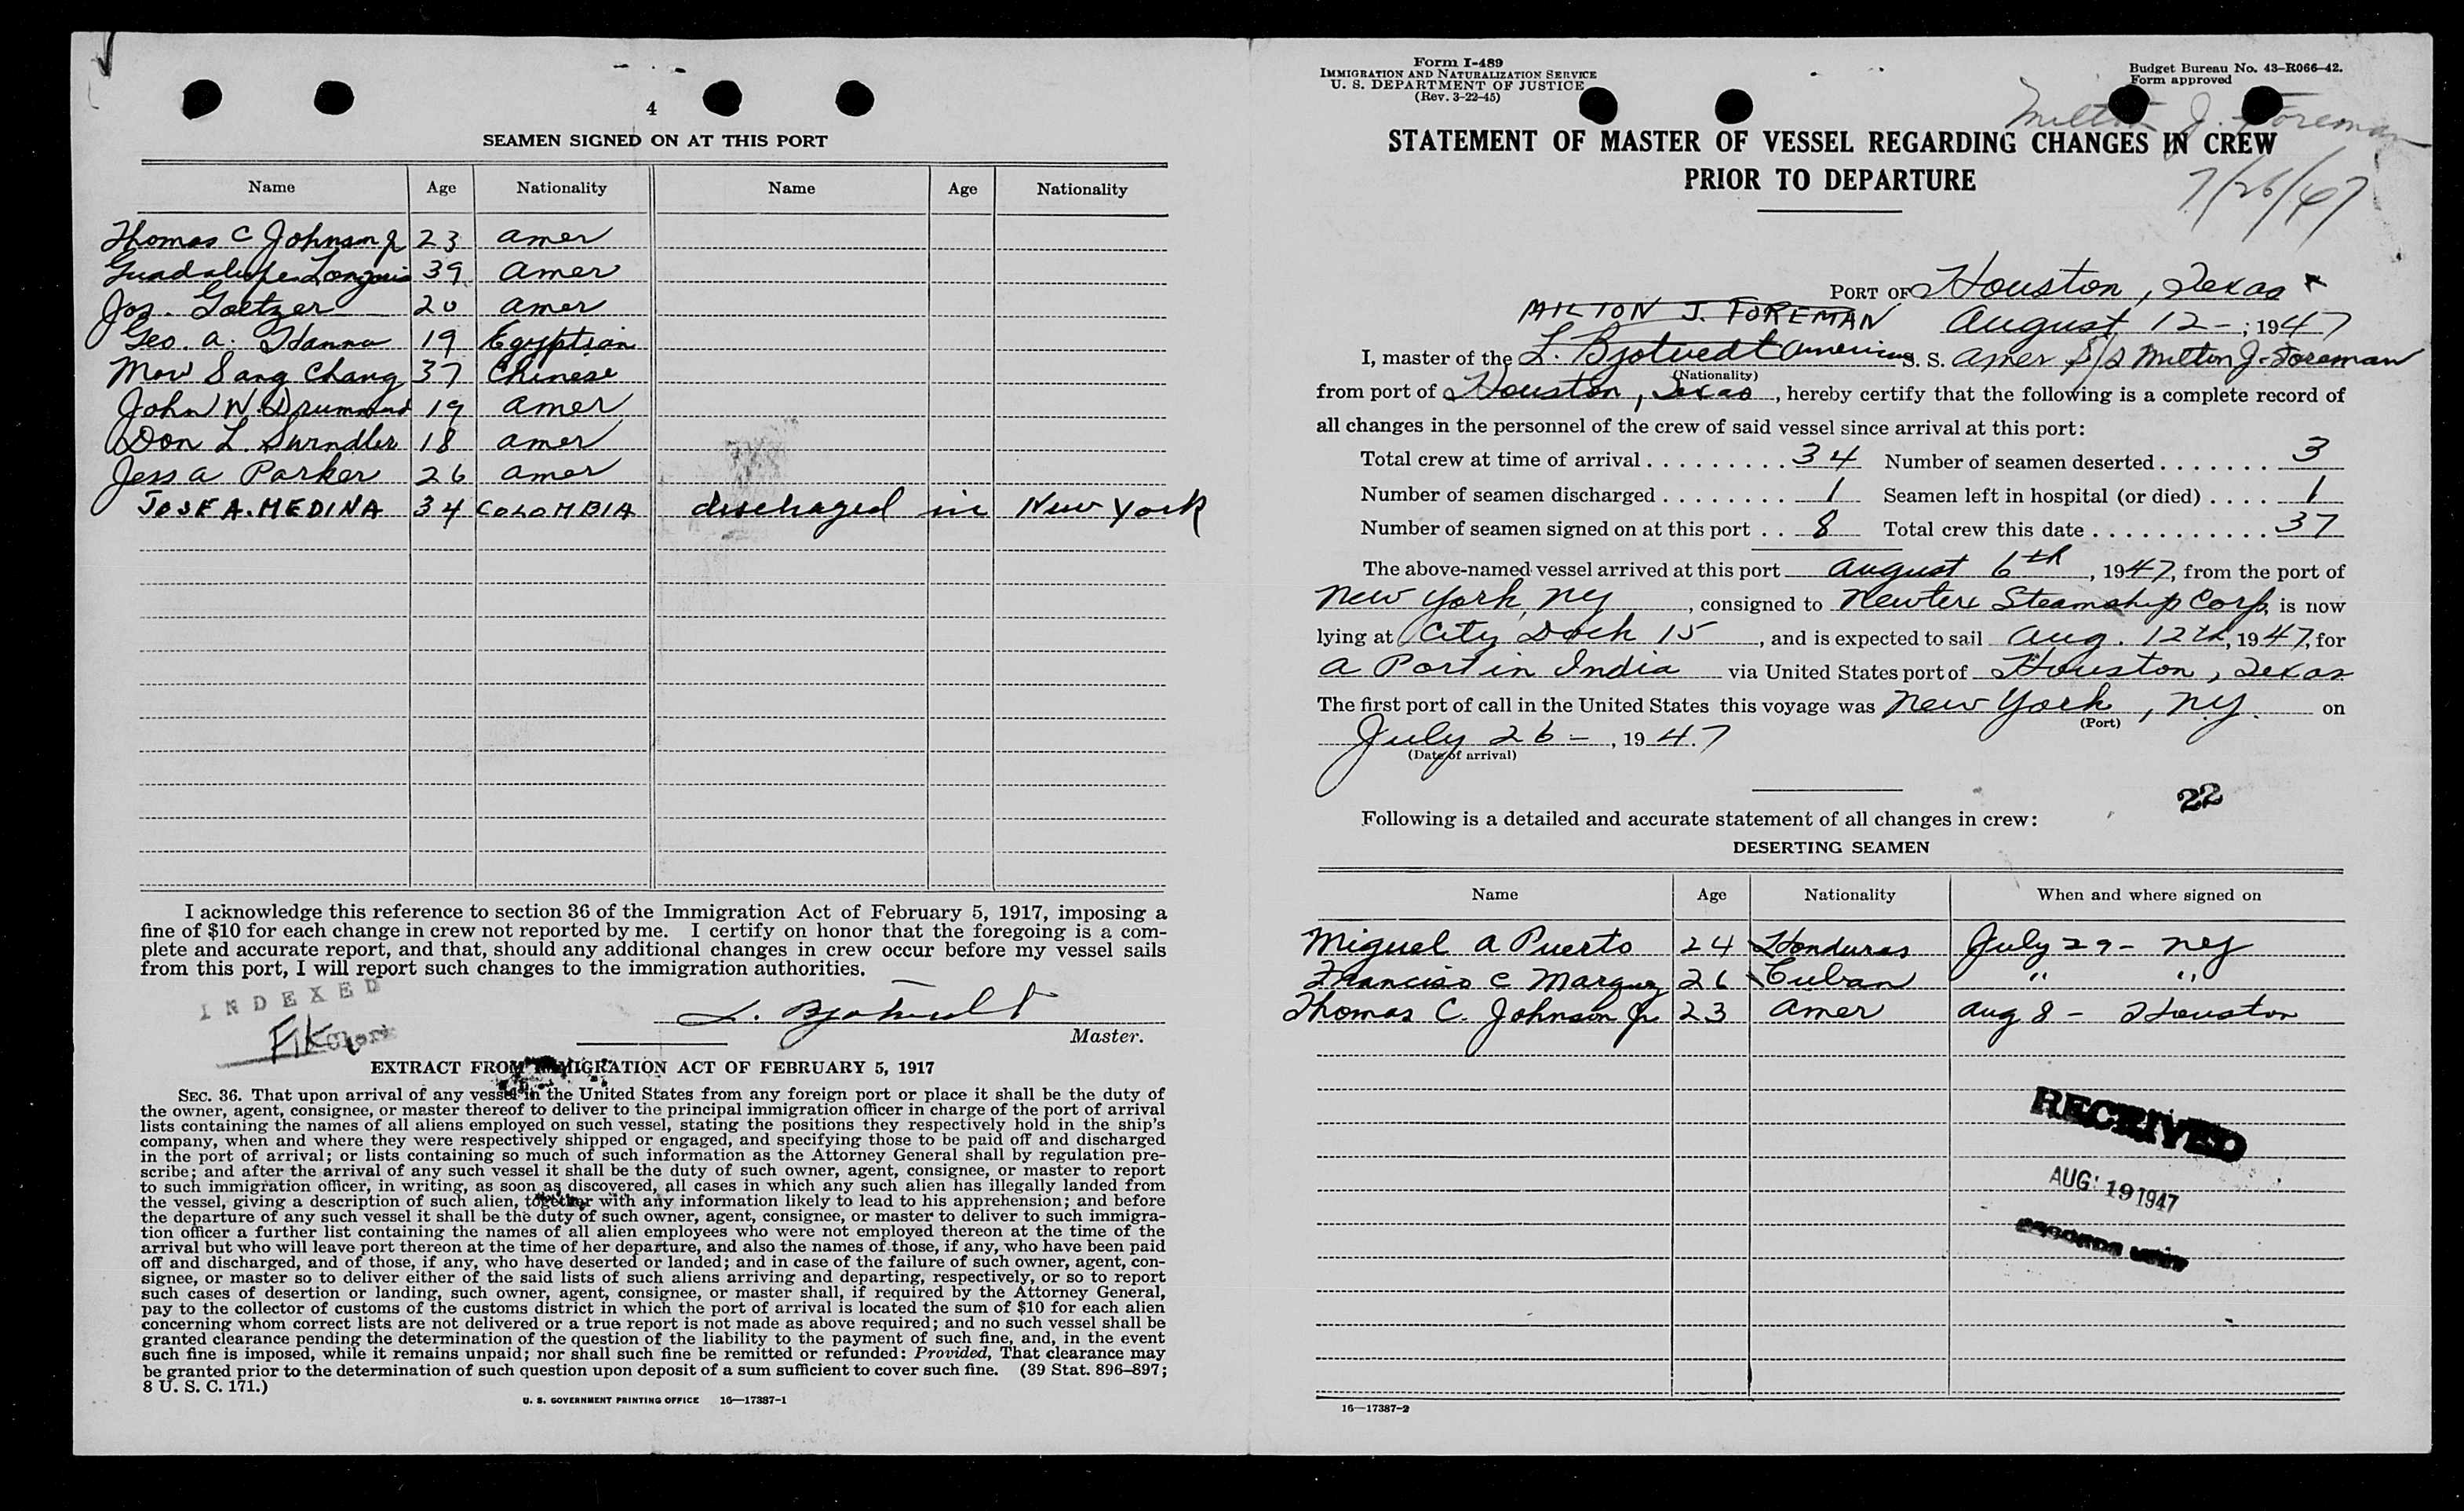 4
SEAMEN SIGNED ON AT THIS PORT
Name Age Nationality Name Age Nationality
Thomas C Johnson Jr 23 Amer
Guadalupe 39 Amer
Jos. Goetzer 20 Amer
Geo. A. Hanna 19 Egyptian
Mow Sang Chang 37 Chinese
John W. Drummond 19 Amer
Don L. Swindler 18 Amer
Jess A Parker 26 Amer
JOSE A. MEDINA 34 COLOMBIA discharged in New York
I acknowledge this reference to section 36 of the Immigration Act of February 5, 1917, imposing a
fine of $10 for each change in crew not reported by me. I certify on honor that the foregoing is a com-
plete and accurate report, and that, should any additional changes in crew occur before my vessel sails
from this port, I will report such changes to the immigration authorities.
INDEXED
Clerk
L. Bjotvedt
Master.
EXTRACT FROM IMMIGRATION ACT OF FEBRUARY 5, 1917
SEC. 36. That upon arrival of any vessel in the United States from any foreign port or place it shall be the duty of
the owner, agent, consignee, or master thereof to deliver to the principal immigration officer in charge of the port of arrival
lists containing the names of all aliens employed on such vessel, stating the positions they respectively hold in the ship's
company, when and where they were respectively shipped or engaged, and specifying those to be paid off and discharged
in the port of arrival; or lists containing so much of such information as the Attorney General shall by regulation pre-
scribe; and after the arrival of any such vessel it shall be the duty of such owner, agent, consignee, or master to report
to such immigration officer, in writing, as soon as discovered, all cases in which any such alien has illegally landed from
the vessel, giving a description of such alien, together with any information likely to lead to his apprehension; and before
the departure of any such vessel it shall be the duty of such owner, agent, consignee, or master to deliver to such immigra-
tion officer a further list containing the names of all alien employees who were not employed thereon at the time of the
arrival but who will leave port thereon at the time of her departure, and also the names of those, if any, who have been paid
off and discharged, and of those, if any, who have deserted or landed; and in case of the failure of such owner, agent, con-
signee, or master so to deliver either of the said lists of such aliens arriving and departing, respectively, or so to report
such cases of desertion or landing, such owner, agent, consignee, or master shall, if required by the Attorney General,
pay to the collector of customs of the customs district in which the port of arrival is located the sum of $10 for each alien
concerning whom correct lists are not delivered or a true report is not made as above required; and no such vessel shall be
granted clearance pending the determination of the question of the liability to the payment of such fine, and, in the event
such fine is imposed, while it remains unpaid; nor shall such fine be remitted or refunded: Provided, That clearance may
be granted prior to the determination of such question upon deposit of a sum sufficient to cover such fine. (39 Stat. 896–897;
8 U. S. C. 171.)
U. S. GOVERNMENT PRINTING OFFICE 16—17387-1
Form I-489
IMMIGRATION AND NATURALIZATION SERVICE
U. S. DEPARTMENT OF JUSTICE
(Rev. 3-22-45)
Budget Bureau No. 43-R066-42.
Form approved
Milton J. Foreman
7/26/47
STATEMENT OF MASTER OF VESSEL REGARDING CHANGES IN CREW
PRIOR TO DEPARTURE
PORT OF Houston, Texas
MILTON J. FOREMAN August 12 -, 1947
I, master of the L. Bjotvedt American S. S. Amer S/S Milton J. Foreman
(Nationality)
from port of Houston, Texas, hereby certify that the following is a complete record of
all changes in the personnel of the crew of said vessel since arrival at this port:
Total crew at time of arrival . . . . . . . . . 34 Number of seamen deserted . . . . . . . 3
Number of seamen discharged . . . . . . . . 1 Seamen left in hospital (or died) . . . . 1
Number of seamen signed on at this port . . 8 Total crew this date . . . . . . . . . . . . 37
The above-named vessel arrived at this port August 6th, 1947, from the port of
New York, NY, consigned to Newtex Steamship Corp, is now
lying at City Dock 15, and is expected to sail Aug. 12th, 1947, for
a Port in India via United States port of Houston, Texas
The first port of call in the United States this voyage was New York, N.Y. on
(Port)
July 26 -, 1947
(Date of arrival)
22
Following is a detailed and accurate statement of all changes in crew:
DESERTING SEAMEN
Name Age Nationality When and where signed on
Miguel A Puerto 24 Honduras July 29 - NY
Francisco C Marquez 26 Cuban " "
Thomas C. Johnson Jr 23 Amer Aug 8 - Houston
RECEIVED
AUG 19 1947
RECORDS UNIT
16—17387-2